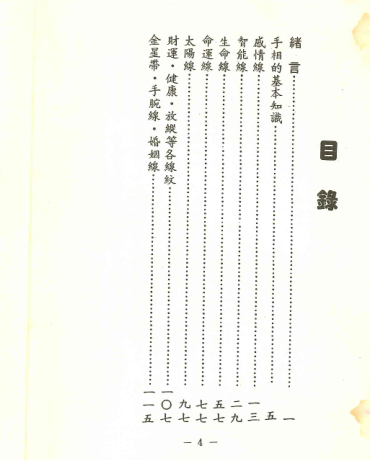 目錄
緒言…………一
手相的基本知識…………五
感情線…………一三
智能線…………二九
生命線…………五七
命運線…………七七
太陽線…………九七
財運・健康・放縱等各線紋…………一〇七
金星帶・手腕線・婚姻線…………一一五
— 4 —